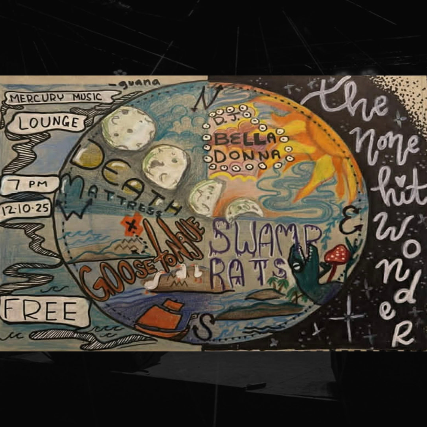 guana
MERCURY MUSIC
LOUNGE
7 PM
12·10·25
FREE
N
W
E
S
D.J.
BELLA
DONNA
DEATH
MATTRESS
X
GOOSETONGUE
SWAMP
RATS
the
none
hit
wondeR